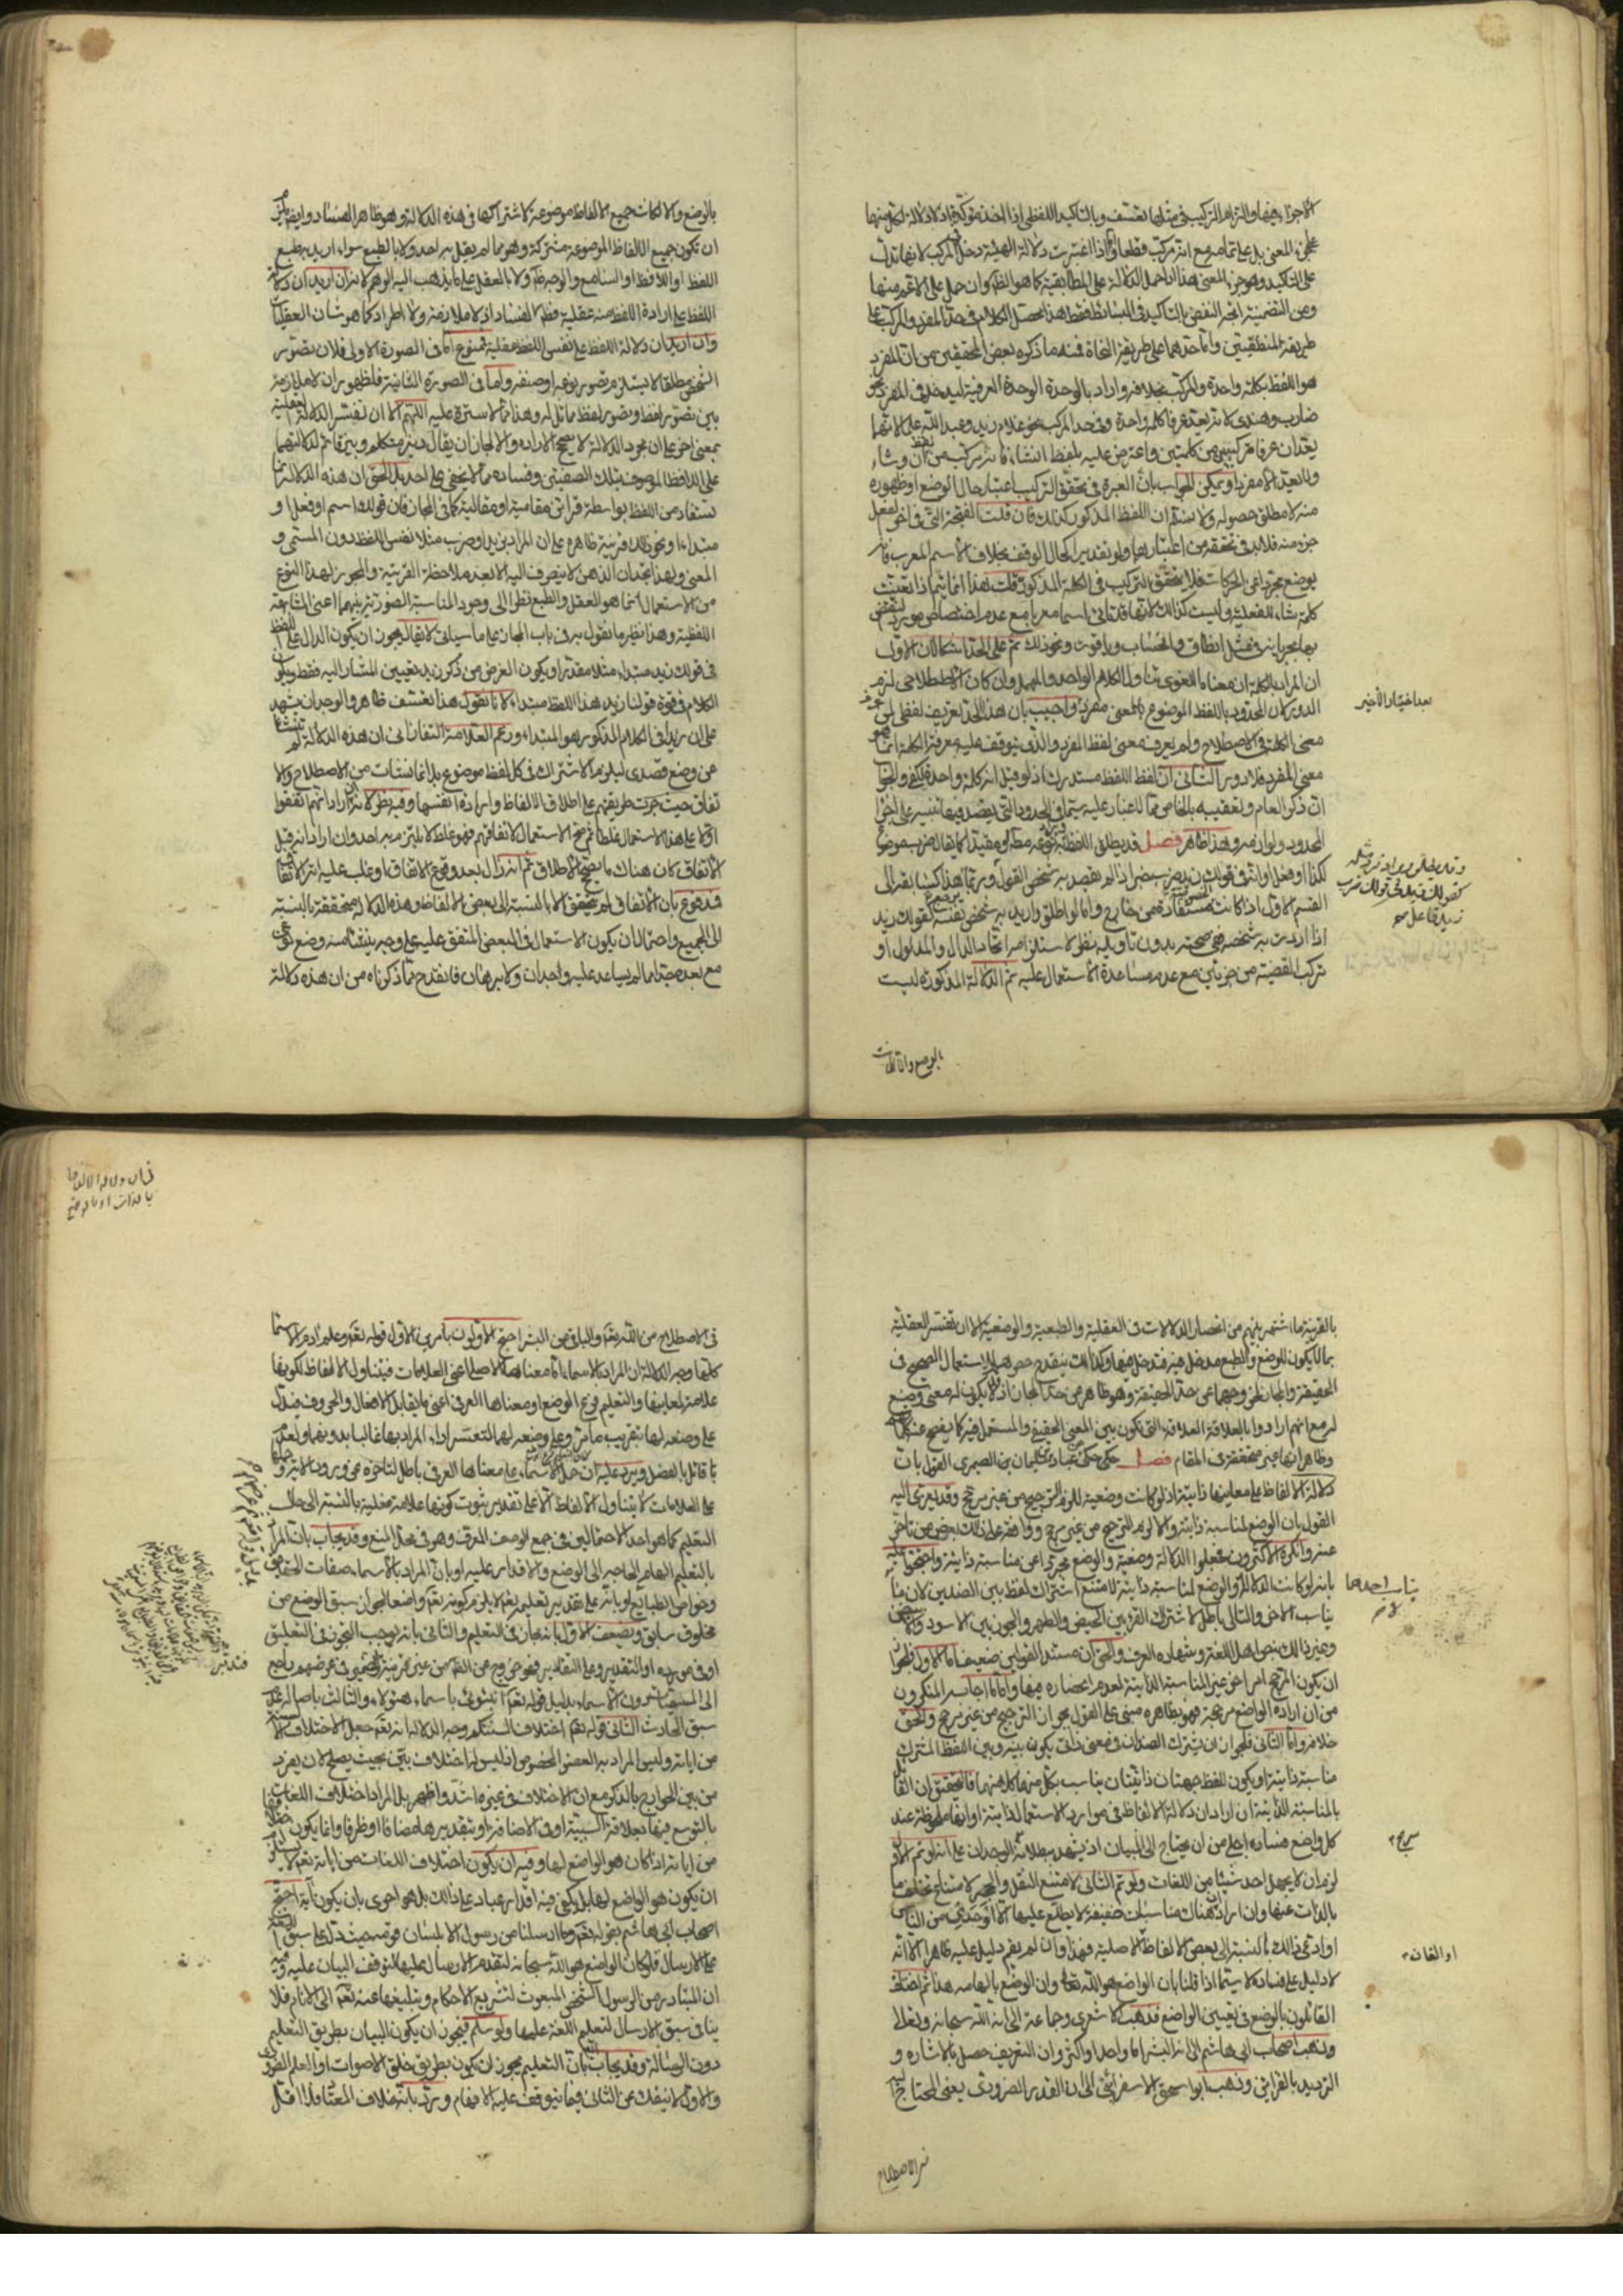 الاجزاء فيها والتزام التركيب في مثلها تعسف وبالتأكيد اللفظي اذا اخذ مؤكده اذ لا دلالة لكل منهما
على جزء المعنى بل على تمامه مع انه مركب قطعا واذا اعتبرت دلالة الهيئة دخل المركب لانها تدل
على التأكيد وهو جزء المعنى هذا اذا حمل الدلالة على المطابقية كما هو الظاهر وان حمل على الاعم منها
ومن التضمنية اتجه النقض بالتأكيد في البسائط فقط هذا محصل الكلام في حد المفرد والمركب على
طريقة المنطقيين واما حدهما على طريقة النحاة فمنه ما ذكره بعض المحققين من ان المفرد
هو اللفظ بكلمة واحدة والمركب بخلافه واراد بالوحدة الوحدة العرفية ليدخل في المفرد نحو
ضارب وهندي لانه يعد عرفا كلمة واحدة وفي حد المركب نحو غلام زيد وعبد الله علما لانهما
يعدان عرفا مركبين من كلمتين واعترض عليه بلفظ انشاء فانه مركب من لفظ ان وشاء
ولا يعد الا مفردا ويمكن الجواب بان العبرة في تحقق التركيب اعتبار حال الوضع او ظهوره
منه لا مطلق حصوله ولا نسلم ان اللفظ المذكور كذلك فان قلت الفتحة التي في اخر الفعل
جزء منه فلابد في تحققه من اعتبارها ولو تقديرا كحال الوقف بخلاف الاسم المعرب فانه
يوضع مجردا عن الحركات فلا يتحقق التركيب في الكلمة المذكورة قلت هذا انما يتم اذا تعينت
كلمة شاء للفعلية وليست كذلك لانها قد تأتي اسما معربا مع عدم اختصاص مورد النقض
بها بجريانه في مثل انطاق والحساب وياقوت ونحو ذلك ثم على الحد اشكالان الاول
ان المراد بالكلمة ان معناها اللغوي تناول الكلام الواحد والمهمل وان كان الاصطلاحي لزم
الدور لان المحدود باللفظ الموضوع لمعنى مفرد واجيب بان هذا الحد تعريف لفظي لمن عرف
معنى الكلمة في الاصطلاح ولم يعرف معنى لفظ المفرد والذي يتوقف عليه معرفة الكلمة انما هو
معنى المفرد فلا دور الثاني ان لفظ اللفظ مستدرك اذ لو قيل انه كلمة واحدة لكفى والجواب
ان ذكر العام وتعقيبه بالخاص مما لا غبار عليه سيما في الحدود التي يقصد فيها تفسير على اجزاء
المحدود ولوازمه وهذا ظاهر فصل قد يطلق اللفظ ويراد به نوعه مطلقا او مقيدا كما يقال ضرب موضوع
لكذا او فعل او اثر في قولك زيد ضرب خبر اذا لم يقصد به شخص القول وربما هذا كسابقه الى
القسم الاول اذا كانت مستفادة من خارج واما لو اطلق واريد به شخص نفسه كقولك زيد
اذا اردت به شخصه ففي صحته بدون تأويل نظر لاستلزامه اتحاد الدال والمدلول او
تركب القضية من جزئين مع عدم مساعدة الاستعمال عليه ثم الدلالة المذكورة ليست
بعد اختيار الاخير
وقد يطلق ويراد فرد مثله
كقولك زيد في قولك ضرب
زيد فاعل صح
بالوضع والا لكانت
بالوضع والا لكانت جميع الالفاظ موضوعة لاشتراكها في هذه الدلالة وهو ظاهر الفساد وايضا يلزم
ان تكون جميع الالفاظ الموضوعة مشتركة وهو مما لم يقل به احد ولا بالطبع سواء اريد به طبع
اللفظ او اللافظ او السامع والوجه ظاهر ولا بالعقل على ما يذهب اليه الوهم لانه ان اريد ان دلالة
اللفظ على ارادة اللفظ منه عقلية فظاهر الفساد اذ لا ملازمة ولا اطراد كما هو شان العقليات
وان اريد ان دلالة اللفظ على نفس اللفظ عقلية فممنوع اما في الصورة الاولى فلان تصور
الشخص مطلقا لا يستلزم تصور نوعه او صنفه واما في الصورة الثانية فلظهور ان لا ملازمة
بين تصور لفظ وتصور لفظ مماثل له وهذا مما لا سترة عليه اللهم الا ان تفسر الدلالة العقلية
بمعنى اخر على ان مجرد الدلالة لا يصحح الارادة والا لجاز ان يقال ديز متكلم وديز قائم لدلالتهما
على اللافظ الموصوف بتلك الصفتين وفساده مما لا يخفى على احد بل الحق ان هذه الدلالة انما
تستفاد من اللفظ بواسطة قرائن مقامية او مقالية كما في المجاز فان قولك اسم او فعل او
مبتداء او نحو ذلك قرينة ظاهرة على ان المراد بزيد او ضرب مثلا نفس اللفظ دون المسمى و
المعنى ولهذا تجد ان الذهن لا ينصرف اليه الا بعد ملاحظة القرينة والمجوز لهذا النوع
من الاستعمال انما هو العقل والطبع نظرا الى وجود المناسبة الصورية بينهما اعني المشابهة
اللفظية وهذا نظير ما نقول به في باب المجاز على ما سيأتي لا يقال يجوز ان يكون الدال على اللفظ
في قولك زيد مبتداء مثلا مقدرا ويكون الغرض من ذكر زيد تعيين المشار اليه فقط ويكون
الكلام في قوة قولنا زيد هذا اللفظ مبتداء لانا نقول هذا تعسف ظاهر والوجدان يشهد
على ان زيدا في الكلام المذكور هو المبتداء وزعم العلامة التفتازاني ان هذه الدلالة لم تنشأ
عن وضع قصدي ليلزم الاشتراك في كل لفظ موضوع بل انما نشات من الاصطلاح والا
تفاق حيث جرت طريقتهم على اطلاق الالفاظ وارادة انفسها وفيه نظر لانه ان اراد انهم اتفقوا
اولا على هذا الاستعمال غلطا ثم صح الاستعمال لاتفاقهم فهو غلط لا يلتزم به احد وان اراد انه قبل
الاتفاق كان هناك ما يصحح الاطلاق ثم انه زال بعد وقوع الاتفاق او غلب عليه اثر الاتفاق
فمدفوع بان الاتفاق لم يتحقق الا بالنسبة الى بعض الالفاظ وهذه الدلالة متحققة بالنسبة
الى الجميع واحتمال ان يكون الاستعمال في البعض المتفق عليه على وجه ينشأ منه وضع نوعي
مع بعده جدا مما لم يساعد عليه وجدان ولا برهان فانقدح مما ذكرناه من ان هذه دلالة
بالقرينة ما اشتهر بينهم من انحصار الدلالات في العقلية والطبعية والوضعية الا ان تفسر العقلية
بما لا يكون للوضع والطبع مدخل فيه فتدخل فيها وكذلك ينقدح حصرهم للاستعمال الصحيح في
الحقيقة والمجاز لخروجهما عن حد الحقيقة وهو ظاهر من حد المجاز اذ لا يكون له معنى وضع
لربما انهم ارادوا بالعلاقة العلاقة التي تكون بين المعنى الحقيقي والمستعمل فيه كما يفصح عنه كلامهم
وظاهر انها غير متحققة في المقام فصل حكي عن عباد بن سليمان بن الصيمري القول بان
دلالة الالفاظ على معانيها ذاتية اذ لو كانت وضعية للزم الترجيح من غير مرجح وقد يعزى اليه
القول بان الوضع لمناسبة ذاتية والا لزم الترجيح من غير مرجح ووافقه على ذلك بعض من تأخر
عنه وانكره الاكثرون فجعلوا الدلالة وضعية والوضع مجردا عن مناسبة ذاتية واحتجوا عليه
بانه لو كانت الدلالة او الوضع لمناسبة ذاتية لامتنع اشتراك لفظ بين الضدين لان ما
يناسب الاخر والتالي باطل لاشتراك القرء بين الحيض والطهر والجون بين الاسود والابيض
وغير ذلك بنص اهل اللغة وشهادة العرف والحق ان مستند القولين ضعيف اما الاول فلجواز
ان يكون المرجح امرا اخر غير المناسبة الذاتية لعدم انحصاره فيها واما ما اجاب به المنكرون
من ان ارادة الواضع مرجحة فهو بظاهره مبني على القول بجواز الترجيح من غير مرجح والحق
خلافه واما الثاني فلجواز ان يشترك الضدان في معنى ذاتي يكون بينه وبين اللفظ المشترك
مناسبة ذاتية او يكون للفظ جهتان ذاتيتان يناسب بكل منهما كلا منهما فالتحقيق ان القائل
بالمناسبة الذاتية ان اراد ان دلالة الالفاظ في موارد الاستعمال ذاتية او انها ملحوظة عند
كل واضع ففساده اجلى من ان يحتاج الى البيان اذ يشهد ببطلانه الوجدان على انه لو تم الاول
لزم ان لا يجهل احد شيئا من اللغات ولو تم الثاني لامتنع النقل والهجر لامتناع تخلف ما
بالذات عنها وان اراد ان هناك مناسبات خفيفة لا يطلع عليها الا اوحدي من الناس
او ادعى ذلك بالنسبة الى بعض الالفاظ الاصلية فهذا وان لم يقم دليل عليه ظاهرا الا انه
لا دليل على فساده لا سيما اذا قلنا بان الواضع هو الله تعالى وان الوضع بالهامه هذا ثم اختلف
القائلون بالوضع في تعيين الواضع فذهب الاشعري وجماعة الى انه الله سبحانه وتعالى
وذهب اصحاب ابي هاشم الى انه البشر اما واحدا او اكثر وان التعريف حصل بالاشارة و
الترديد بالقرائن وذهب ابو اسحق الاسفرائني الى ان القدر الضروري يعني المحتاج اليه
يناسب احدهما لا
مرجح
او القائ
في الاصطلاح
في ان دلالة الالفاظ
بالذات او بالوضع
في الاصطلاح من الله تعالى والباقي من البشر احتج الاولون بامرين الاول قوله تعالى وعلم ادم الاسماء
كلها وجه الدلالة ان المراد بالاسماء اما معناها الاصلي اعني العلامات فيتناول الالفاظ لكونها
علامة لمعانيها والتعليم فرع الوضع او معناها العرفي اعني ما يقابل الافعال والحروف فيدل
على وضعه لها بتقريب ما مر وعلى وضعه لهما لتعسر اداء المراد بها غالبا بدونهما ولعدم
قائل بالفصل ويرد عليه ان حمل الاسماء على معناها العرفي باطل لتأخره عن ورود الاية وحملها
على العلامات لا يتناول الالفاظ الا على تقدير ثبوت كونها علامة فعلية بالنسبة الى حال
التعليم كما هو احد الاحتمالين في جمع الوصف المعرف وهو في محل المنع وقد يجاب بان المراد
بالتعليم الهام الحاجة الى الوضع والاقدار عليه او بان المراد بالاسماء صفات الحقائق
وخواص الطبائع او بانه على تقدير تعليمه تعالى لا يلزم كونه تعالى واضعا لجواز سبق الوضع من
مخلوق سابق ويضعف الاول بانه مجاز في التعليم والثاني بانه يوجب التجوز في التعليق
او في مورده او التقدير وعلى التقادير فهو خروج عن الظاهر من غير قرينة والضمير في عرضهم راجع
الى المسميات دون الاسماء بدليل قوله تعالى انبئوني باسماء هؤلاء والثالث باصالة عدم
سبق الحادث الثاني قوله تعالى واختلاف السنتكم وجه الدلالة انه تعالى جعل الاختلاف الالسنة
من اياته وليس المراد به العضو المخصوص اذ ليس له اختلاف بين بحيث يصلح لان يفرد
من بين الجوارح بالذكر مع ان الاختلاف في غيره اشد واظهر بل المراد اختلاف اللغات اما
بالتوسع فيها بعلاقة السببية او في الاضافة او بتقديرها مضافا او ظرفا وانما يكون
من اياته اذا كان هو الواضع لها وفيه ان يكون اختلاف اللغات من اياته تعالى لا يستلزم
ان يكون هو الواضع لها بل يكفي فيه اقدار عباده على ذلك بل هو احرى بان يكون اية احتج
اصحاب ابي هاشم بقوله تعالى وما ارسلنا من رسول الا بلسان قومه حيث دل على سبق اللغة
على الارسال فلو كان الواضع هو الله سبحانه لتقدم الارسال عليها لتوقف البيان عليه وفيه
ان المتبادر من الرسول الشخص المبعوث لتشريع الاحكام وتبليغها عنه تعالى الى الانام فلا
ينافي سبق الارسال لتعليم اللغة عليها ولو سلم فيجوز ان يكون البيان بطريق التعليم
دون الرسالة وقد يجاب بان التعليم يجوز ان يكون بطريق خلق الاصوات او العلم الضروري
والاول لا ينفك عن الثاني فيما يتوقف عليه الافهام ورد بانه خلاف المعتاد فلا اقل
فتدبر